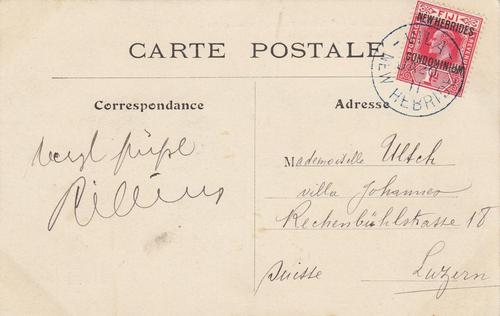 CARTE POSTALE
FIJI
NEW HEBRIDES
CONDOMINIUM
NEW HEBRI
Correspondance
Adresse
Mademoiselle Ultsch
villa Johannes
Rechenbühlstrasse 18
Suisse
Luzern